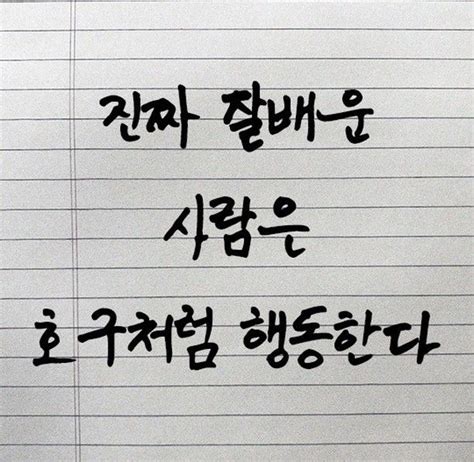 진짜 잘배운
사람은
호구처럼 행동한다